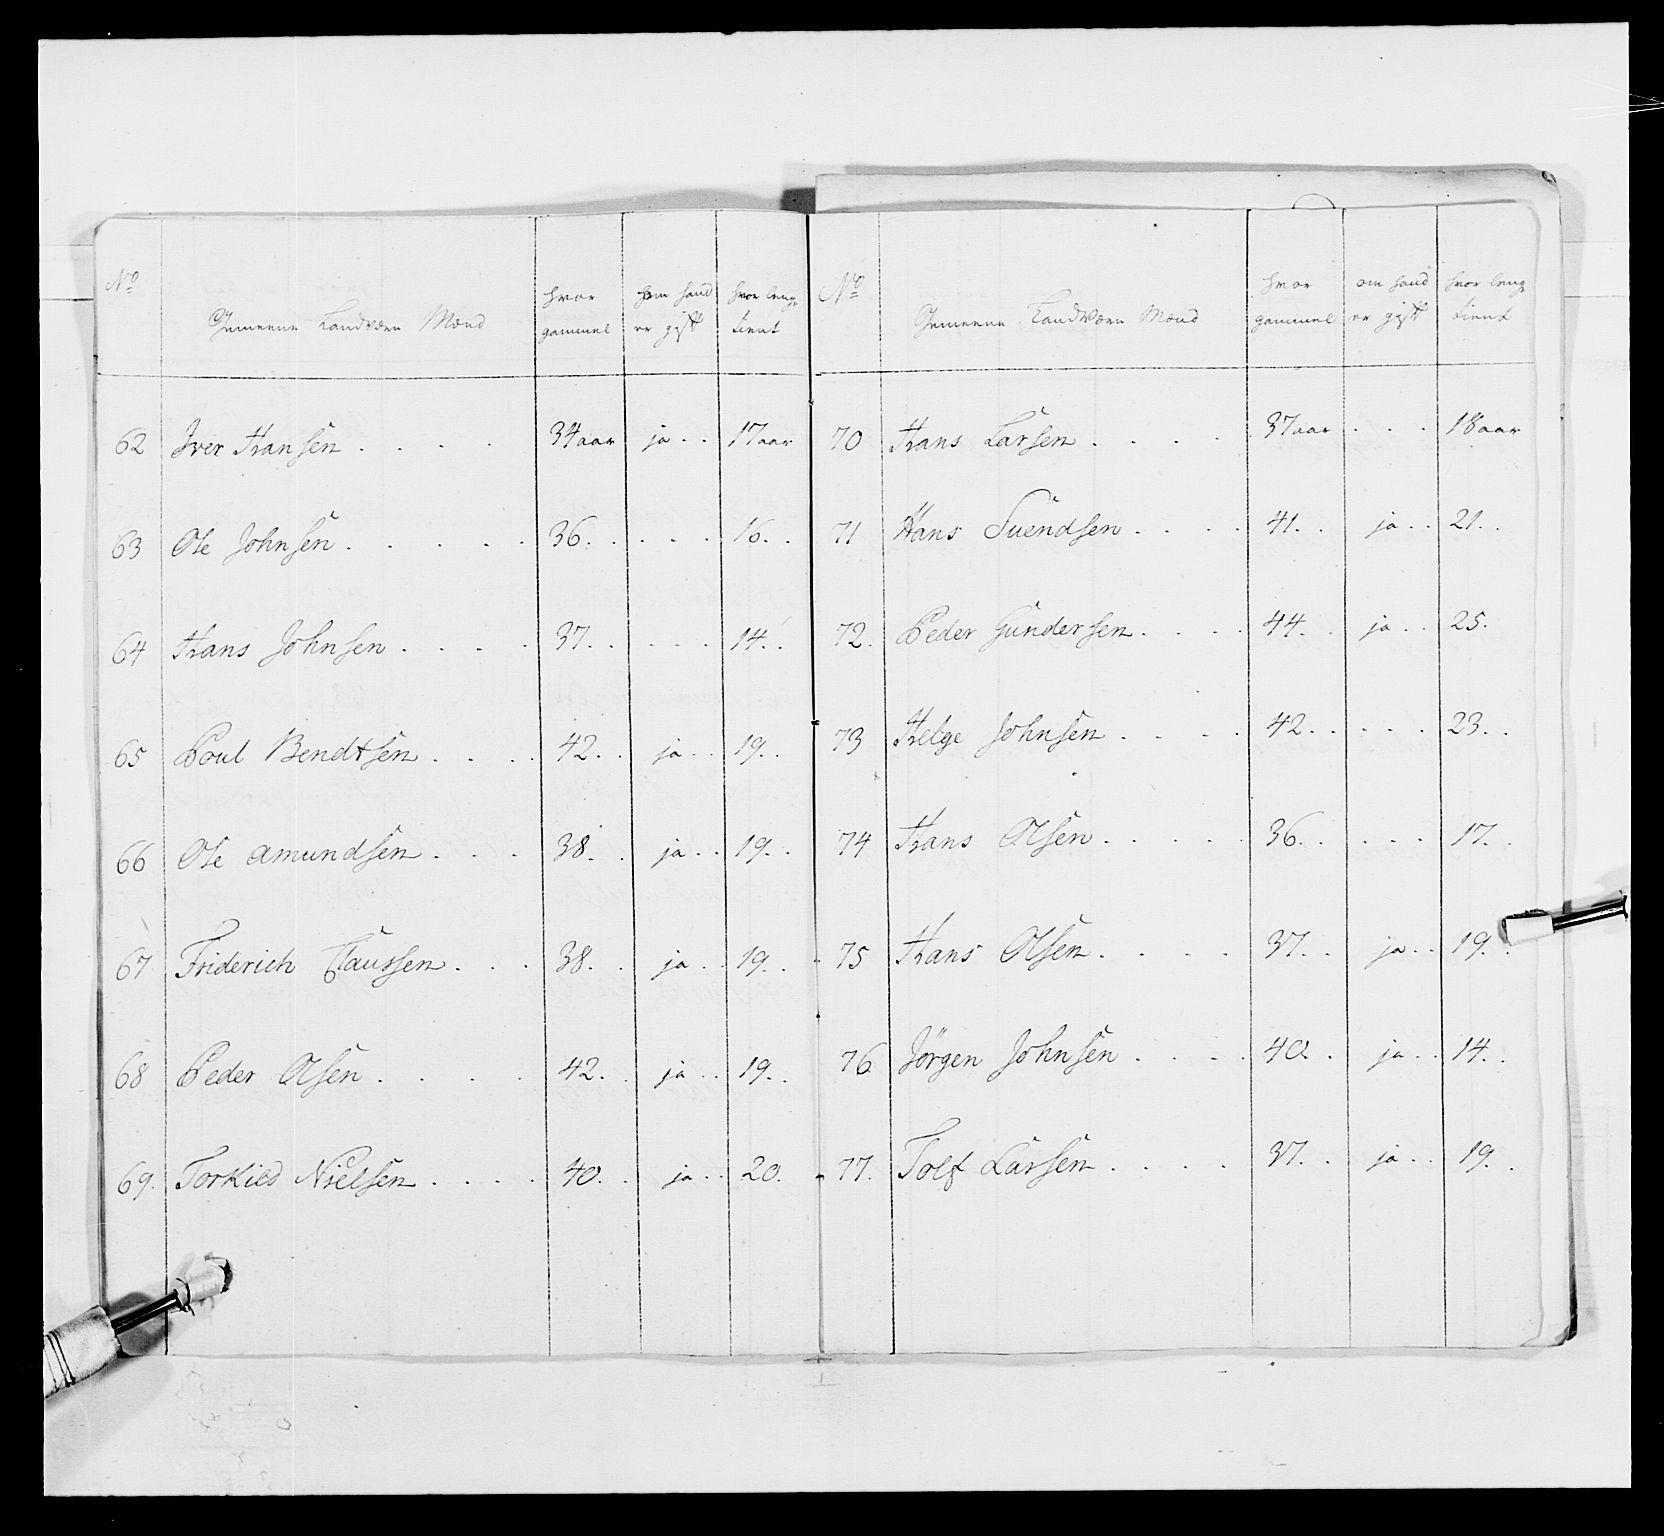 No
Gemeene Landværn Mænd
hvor gammel
om hand er gift
hvor lenge tient
62 Iver Hansen . . . . 34 aar ja . . 17 aar
63 Ole Johnsen . . . . . 36. . . . . 16. .
64 Hans Johnsen . . . . 37. . . . . 14. .
65 Poul Bendtsen . . . . 42. . ja . . 19. .
66 Ole Amundsen . . . 38. . ja . . 19. .
67 Friderich Claussen . . . 38. . ja . . 19. .
68 Peder Olsen . . . . 42. . ja . . 19. .
69. Torkild Nielsen . . . . 40. . ja . . 20. .
No
Gemeene Landværn Mænd
hvor gammel
om hand er gift
hvor lenge tient
70 Hans Larsen . . . . 37 aar . . . 18 aar
71 Hans Suendsen . . . . 41. . ja . . 21. .
72. Peder Gundersen . . . . 44. . ja . . 25.
73 Helge Johnsen . . . . 42. . . . . 23. .
74 Hans Olsen . . . . . 36. . . . . 17. .
75 Hans Olsen . . . . 37. . ja . . 19. .
76 Jörgen Johnsen . . . . 40. . ja . . 14. .
77. Tolf Larsen . . . . 37. . ja . . 19. .